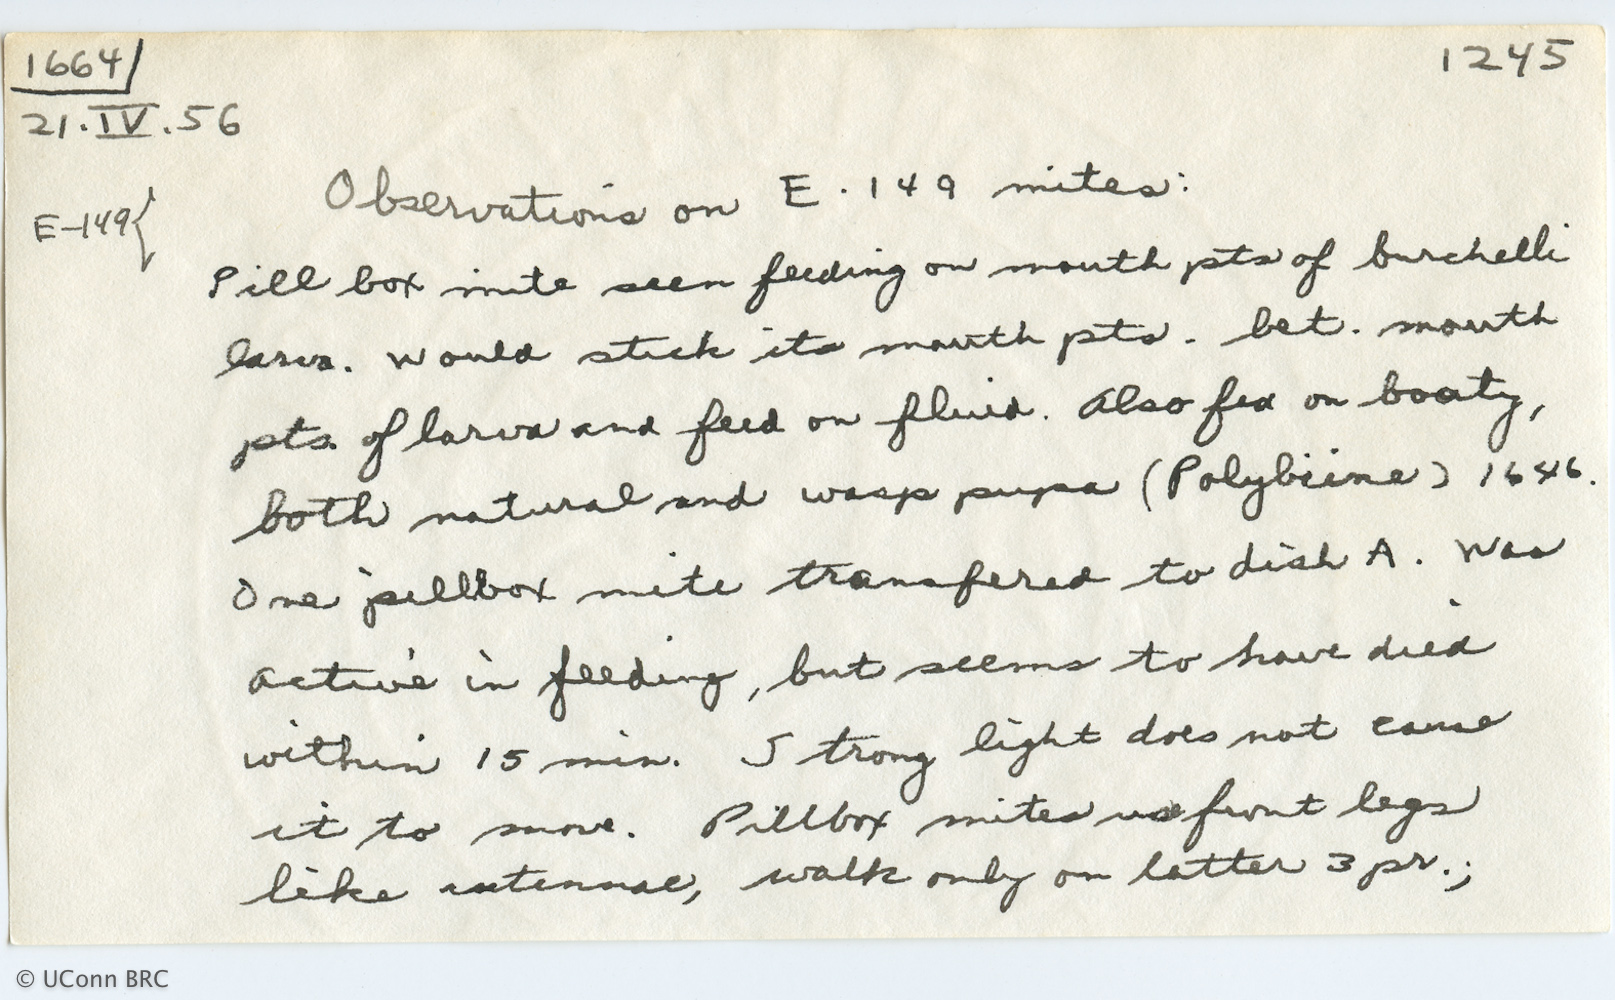 1664
1245
21.IV.56
E-149{
Observations on E.149 mites:
Pill box mite seen feeding on mouth pts of burchelli
larva. Would stick its mouth pts. bet. mouth
pts. of larva and feed on fluid. Also fed on booty,
both natural and wasp pupa (Polybiine) 1646.
One pillbox mite transfered to dish A. Was
active in feeding, but seems to have died
within 15 min. Strong light does not cause
it to move. Pillbox mites use front legs
like antennae, walk only on latter 3 pr.;
© UConn BRC